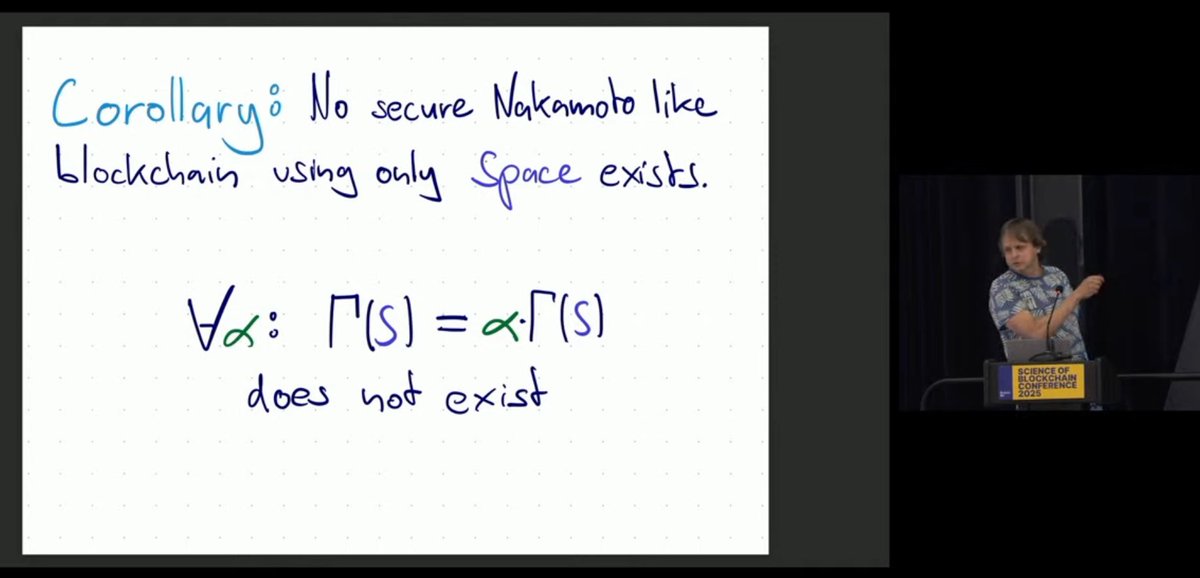 Corollary: No secure Nakamoto like
blockchain using only Space exists.
∀α: Γ(S) = α·Γ(S)
does not exist
SCIENCE OF
BLOCKCHAIN
CONFERENCE
2025